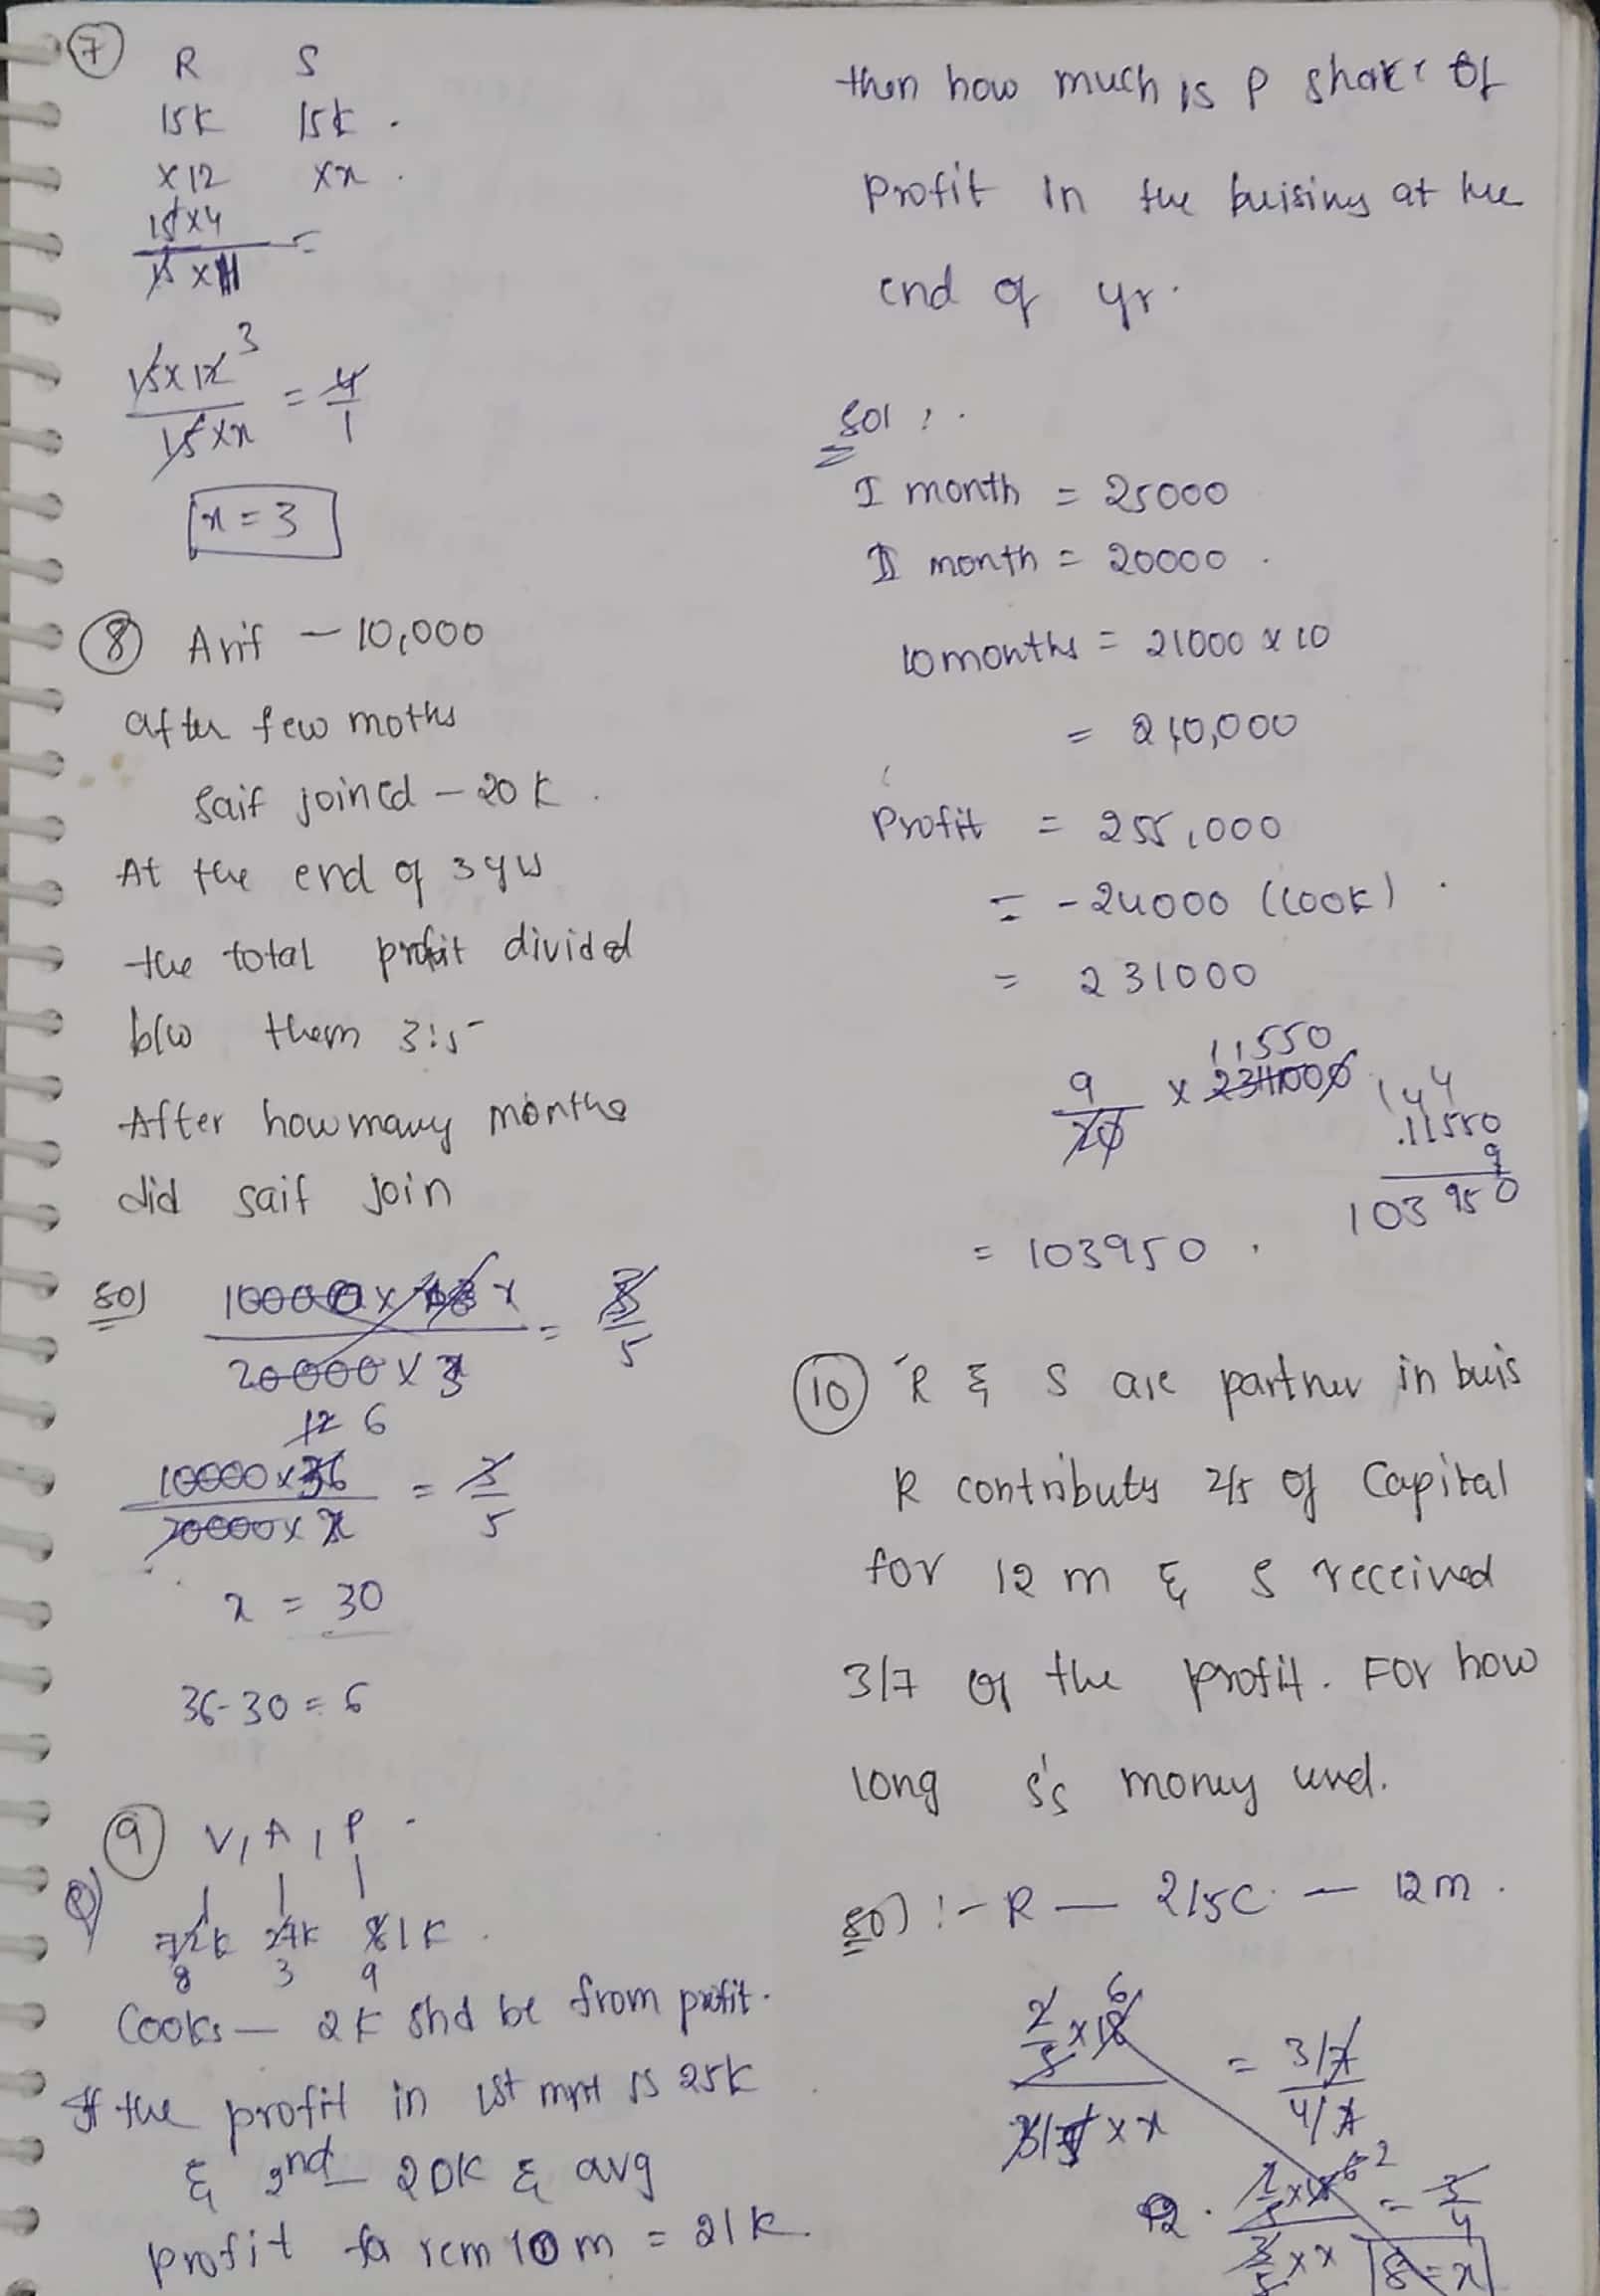 7
R S
15K 15K .
x12 xx .
15x4
15x11 =
15x12 3
15xx = 4
1
x = 3
8 Arif — 10,000
after few moths
Saif joined — 20 K .
At the end of 3 yrs
the total profit divided
b/w them 3:5
After how many months
did saif join
sol
5
20000 x 3
12 6
10000x36 = 3
20000x x 5
x = 30
36-30 = 6
9 V, A, P .
Q)
72K 27K 81K .
8 3 9
Cooks — 2K shd be from profit.
If the profit in 1st mnt is 25K
& 2nd — 20K & avg
profit fo rem 10 m = 21K
then how much is P share of
Profit in the buisins at the
end of yr.
sol : .
I month = 25000
II month = 20000 .
10 months = 21000 x 10
= 210,000
Profit = 255,000
= -24000 (COOK) .
= 231000
11550
9 x 231000
20
144
11550
9
103950
= 103950 .
10 R & S are partner in buis
R contributs 2/5 of Capital
for 12 m & S received
3/7 of the profit. For how
long S's money used.
sol :- R — 2/5C — 12m .
2 x 12 6
5 = 3/7
3/5 x x 4/7
2 = 3
5 4
3 x x 8 = x
5